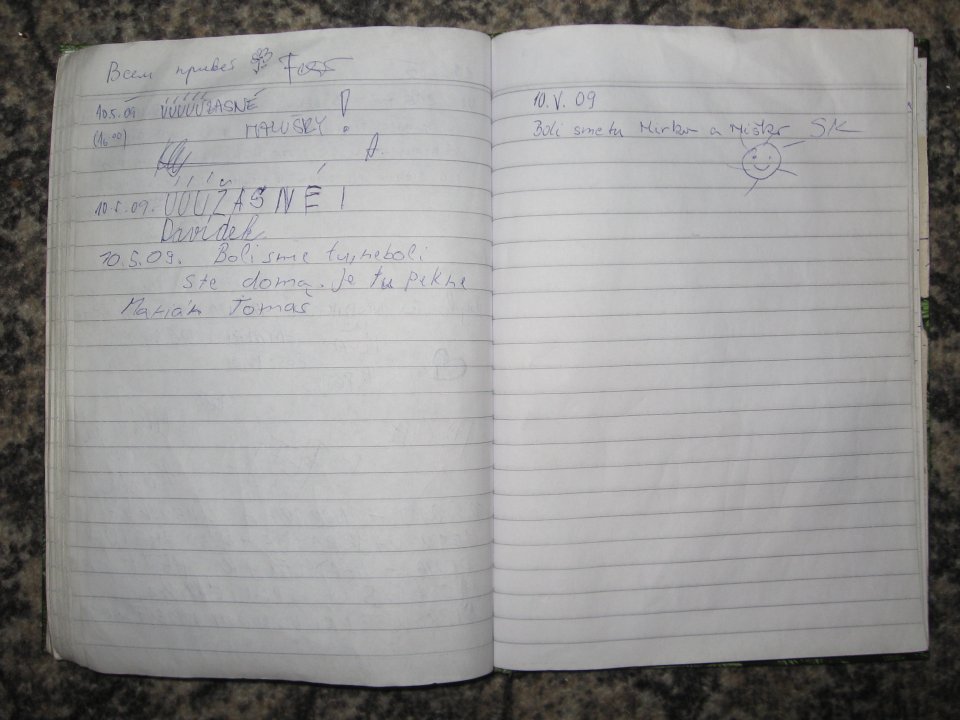 Всем привет
10.5.09 ÚÚÚÚÚŽASNÉ !
(16⁰⁰) HALUŠKY
A.
10.5.09. ÚÚÚŽASNÉ!
Davidek
10.5.09. Boli sme tu, neboli
ste doma. Je tu pekne
Marián Tomáš
10.V.09
Boli sme tu Mirka a Miška SK